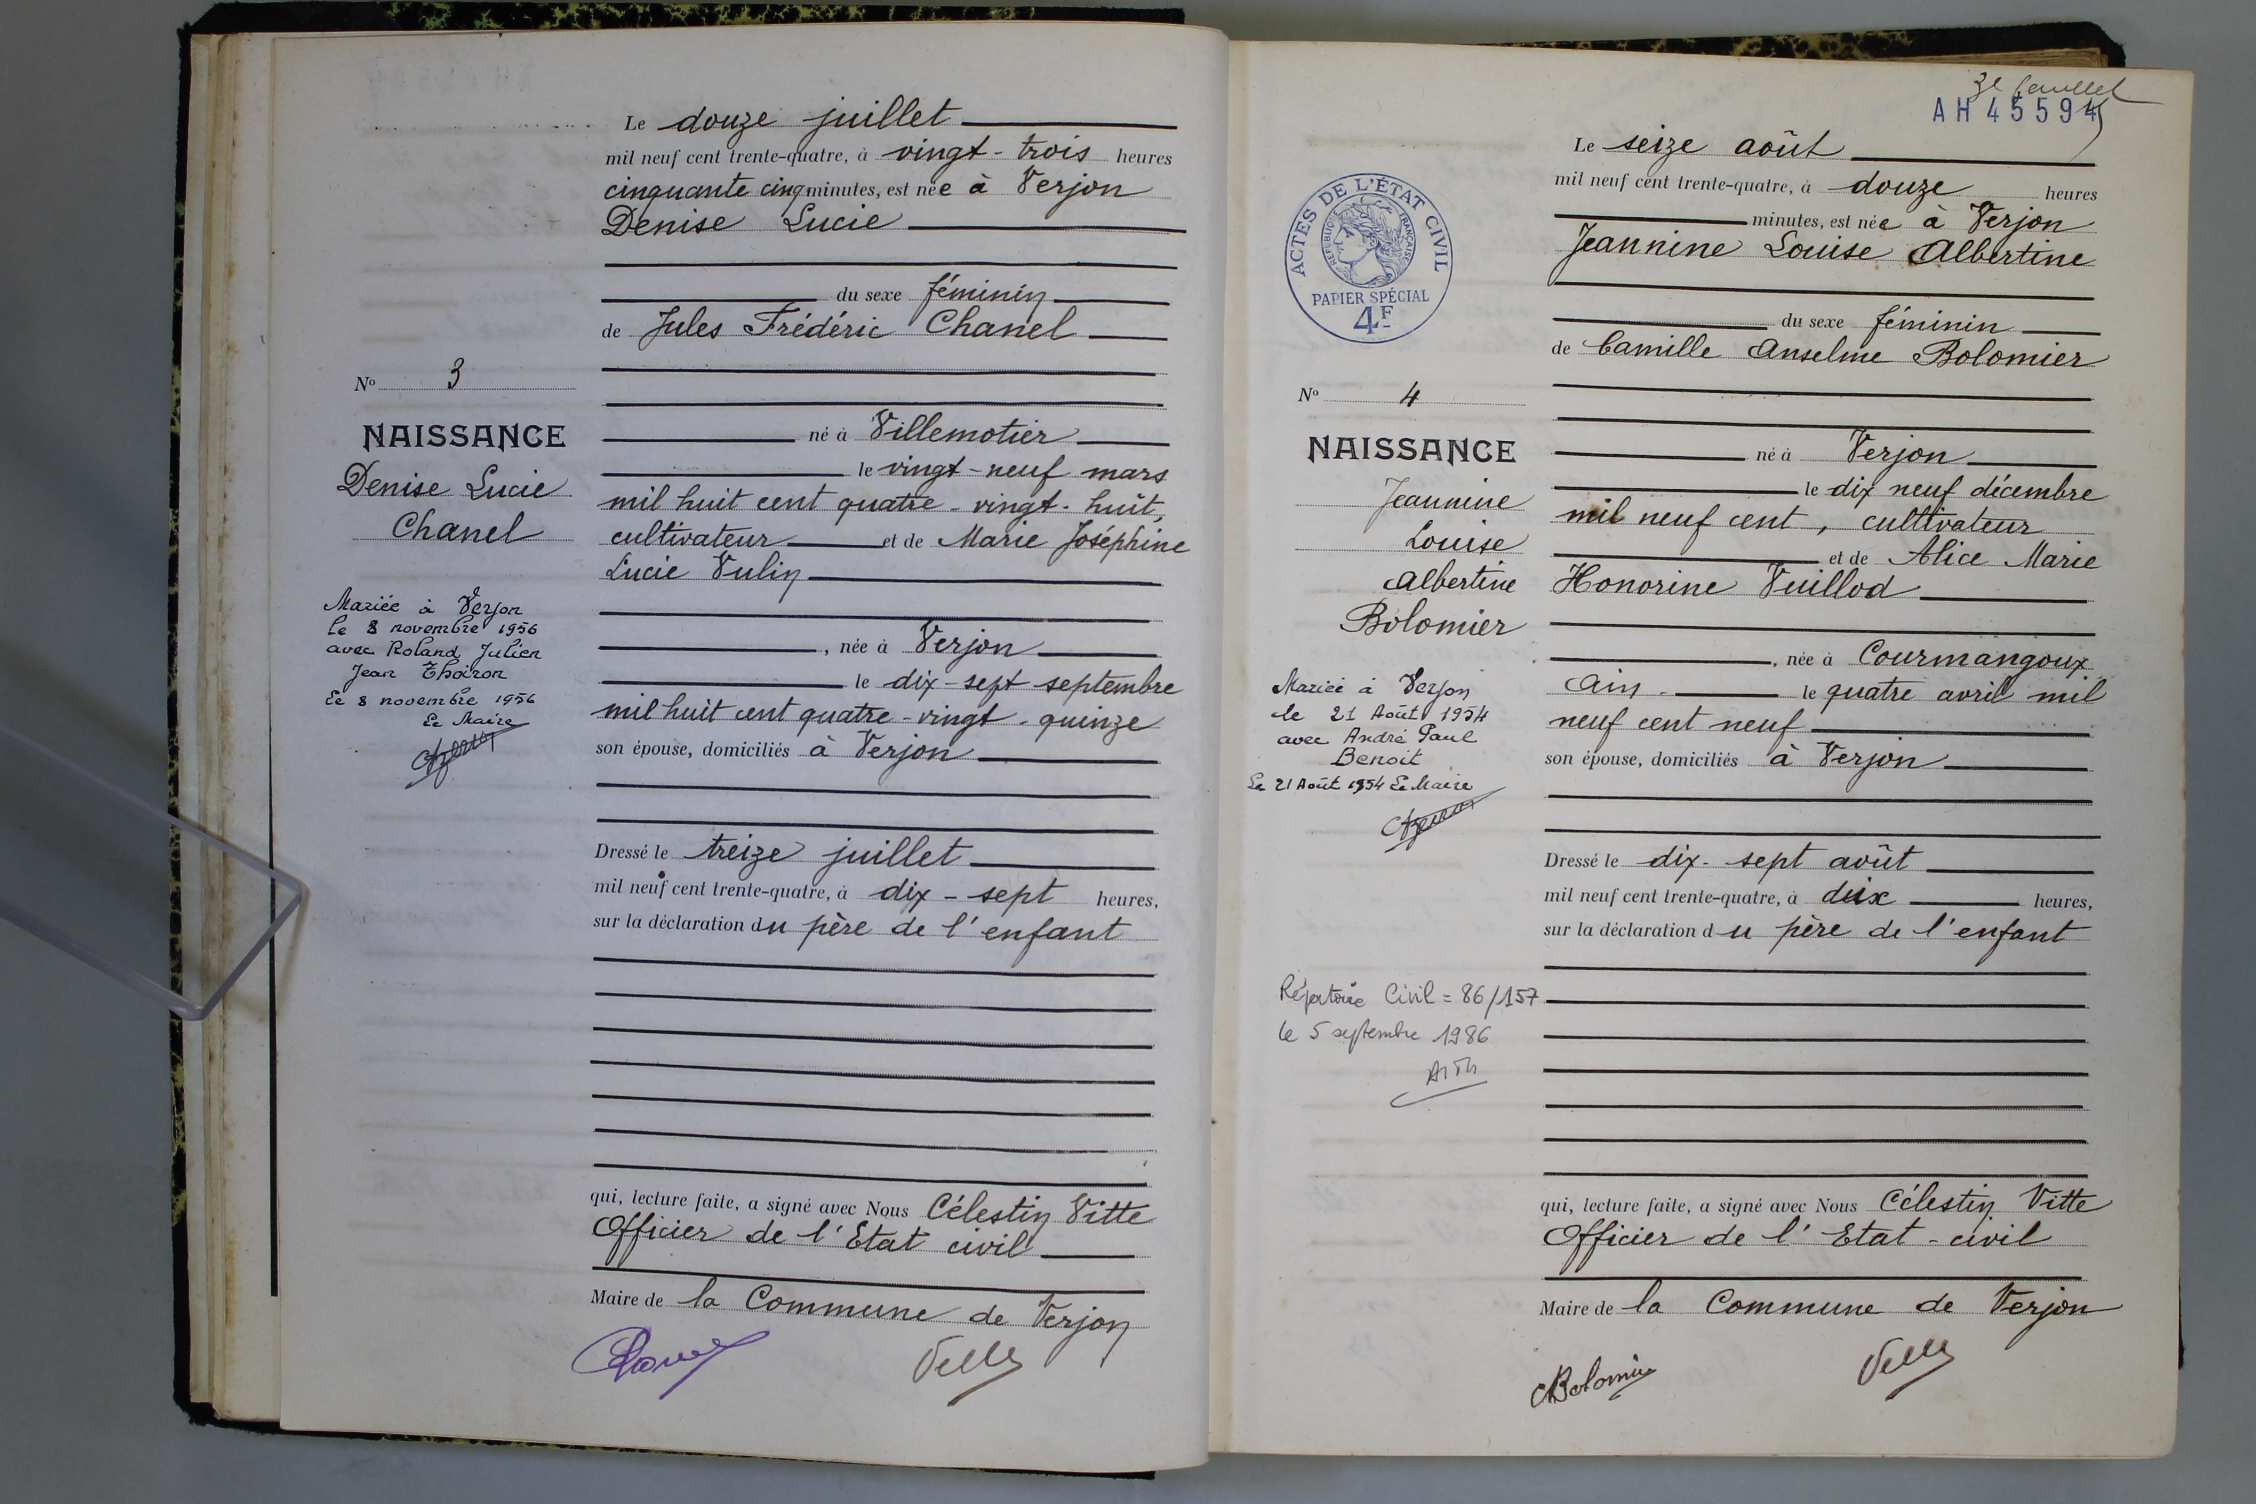 Le douze juillet
mil neuf cent trente-quatre, à vingt-trois heures
cinquante cinq minutes, est née à Verjon
Denise Lucie
du sexe féminin
de Jules Frédéric Chanel
né à Villemotier
le vingt-neuf mars
mil huit cent quatre-vingt-huit,
cultivateur et de Marie Joséphine
Lucie Vulin
, née à Verjon
le dix-sept septembre
mil huit cent quatre-vingt-quinze
son épouse, domiciliés à Verjon
Dressé le treize juillet
mil neuf cent trente-quatre, à dix-sept heures,
sur la déclaration du père de l'enfant
qui, lecture faite, a signé avec Nous Célestin Vitte
Officier de l'Etat civil
Maire de la Commune de Verjon
No 3
NAISSANCE
Denise Lucie
Chanel
Mariée à Verjon
le 8 novembre 1956
avec Roland Julien
Jean Thoiron
Le 8 novembre 1956
Le Maire
3e feuillet
AH45594
Le seize août
mil neuf cent trente-quatre, à douze heures
minutes, est née à Verjon
Jeannine Louise Albertine
du sexe féminin
de Camille Anselme Bolomier
né à Verjon
le dix neuf décembre
mil neuf cent, cultivateur
et de Alice Marie
Honorine Vuillod
, née à Courmangoux
Ain le quatre avril mil
neuf cent neuf
son épouse, domiciliés à Verjon
Dressé le dix-sept août
mil neuf cent trente-quatre, à dix heures,
sur la déclaration du père de l'enfant
qui, lecture faite, a signé avec Nous Célestin Vitte
Officier de l'Etat-civil
Maire de la Commune de Verjon
Bolomier
ACTES DE L'ÉTAT CIVIL
RÉPUBLIQUE FRANÇAISE
PAPIER SPÉCIAL
4F
No 4
NAISSANCE
Jeannine
Louise
Albertine
Bolomier
Mariée à Verjon
le 21 Août 1954
avec André Paul
Benoit
Le 21 Août 1954 Le Maire
Répertoire Civil = 86/157
le 5 septembre 1986